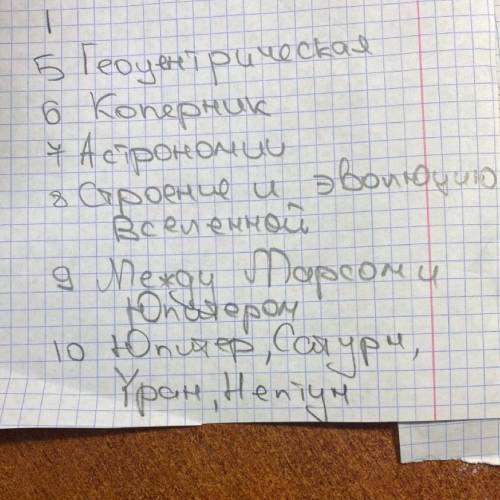 1
5 Геоцентрическая
6 Коперник
7 Астрономии
8 Строение и эволюцию
Вселенной
9 Между Марсом и
Юпитером
10 Юпитер, Сатурн,
Уран, Нептун